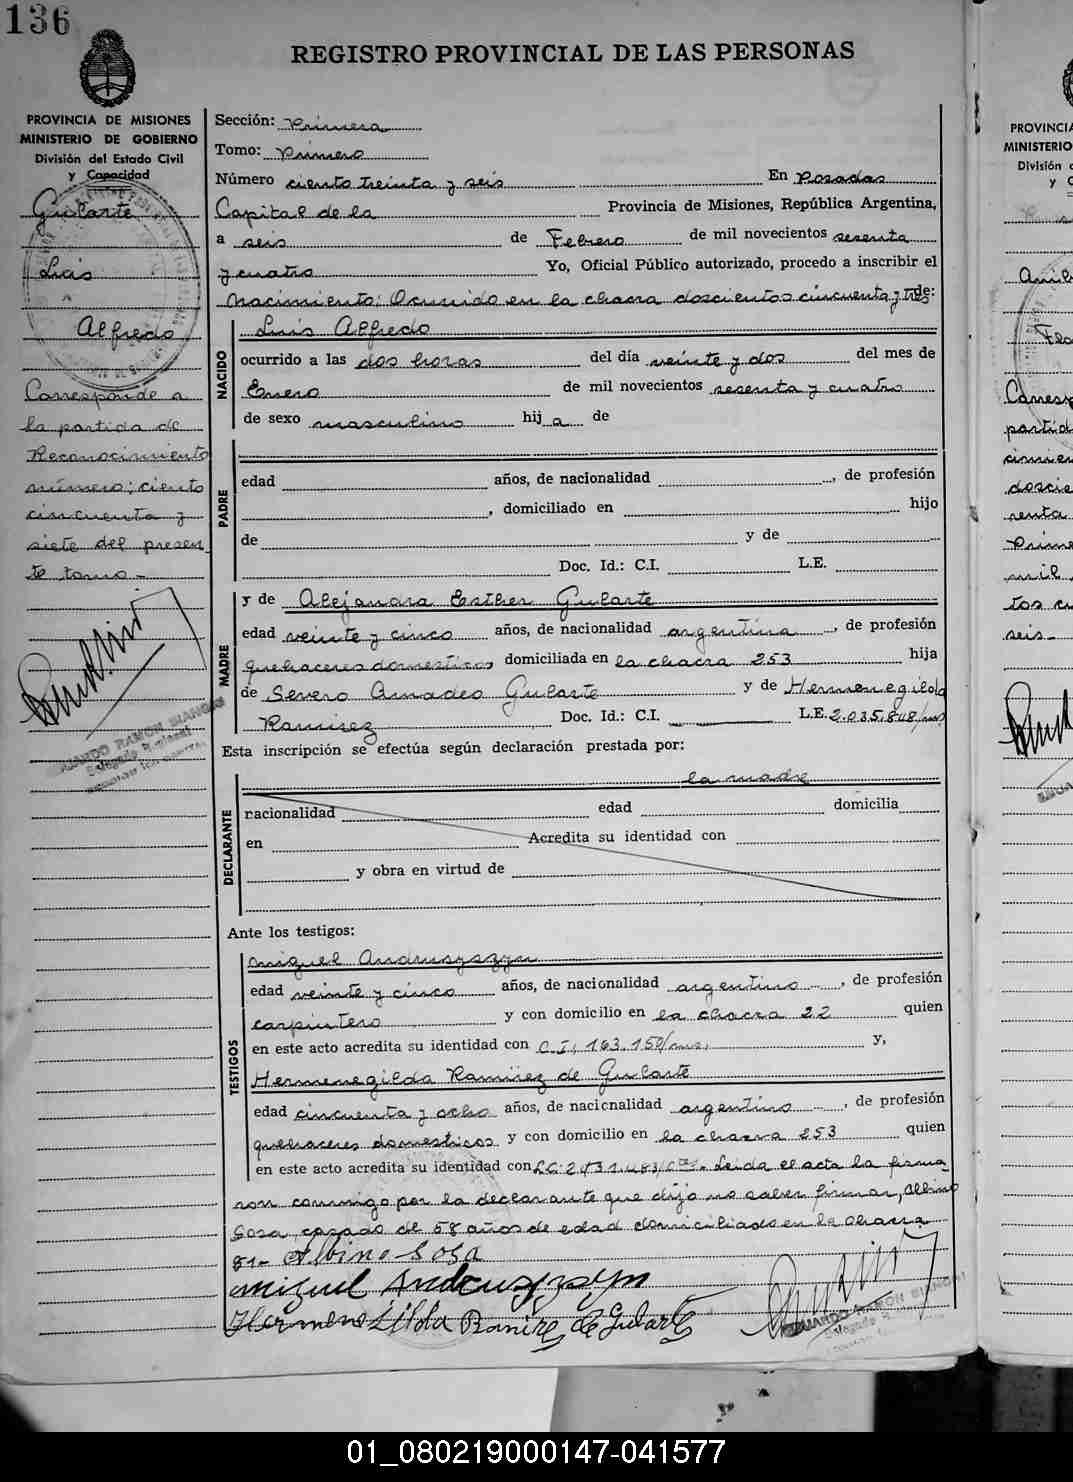 136
REGISTRO PROVINCIAL DE LAS PERSONAS
PROVINCIA DE MISIONES
MINISTERIO DE GOBIERNO
División del Estado Civil
y Capacidad
Gularte
Luis
Alfredo
Corresponde a
la partida de
Reconocimiento
número; ciento
cincuenta y
siete del presen
te tomo -
EDUARDO RAMON BIANGHI
Delegado
Sección: Primera
Tomo: Primero
Número ciento treinta y seis En Posadas
Capital de la Provincia de Misiones, República Argentina,
a seis de Febrero de mil novecientos sesenta
y cuatro Yo, Oficial Público autorizado, procedo a inscribir el
Nacimiento: Ocurrido en la chacra doscientos cincuenta y tres de:
NACIDO
Luis Alfredo
ocurrido a las dos horas del día veinte y dos del mes de
Enero de mil novecientos sesenta y cuatro
de sexo masculino hij a de
PADRE
edad años, de nacionalidad , de profesión
, domiciliado en hijo
de y de
Doc. Id.: C.I. L.E.
MADRE
y de Alejandra Esther Gularte
edad veinte y cinco años, de nacionalidad argentina , de profesión
quehaceres domesticos domiciliada en la chacra 253 hija
de Severo Amadeo Gularte y de Hermenegilda
Ramirez Doc. Id.: C.I. L.E. 2.035.848/ms
Esta inscripción se efectúa según declaración prestada por:
DECLARANTE
la madre
nacionalidad edad domicilia
en Acredita su identidad con
y obra en virtud de
Ante los testigos:
TESTIGOS
Miguel Andrusyszyn
edad veinte y cinco años, de nacionalidad argentino , de profesión
carpintero y con domicilio en la chacra 22 quien
en este acto acredita su identidad con C.I. 163.150/ms, y,
Hermenegilda Ramirez de Gularte
edad cincuenta y ocho años, de nacionalidad argentino , de profesión
quehaceres domesticos y con domicilio en la chacra 253 quien
en este acto acredita su identidad con Leida el acta la firma
ron conmigo por la declarante que dijo no saber firmar, Albino
Sosa, casado de 58 años de edad domiciliado en la chacra
81- Albino Sosa
Miguel Andrusyszyn
Hermenegilda Ramirez de Gularte
EDUARDO RAMON BIANGHI
Delegado
PROVINCIA
MINISTERIO
División
y C
partid
doscie
renta
Prime
mil
tos cu
seis-
01_080219000147-041577